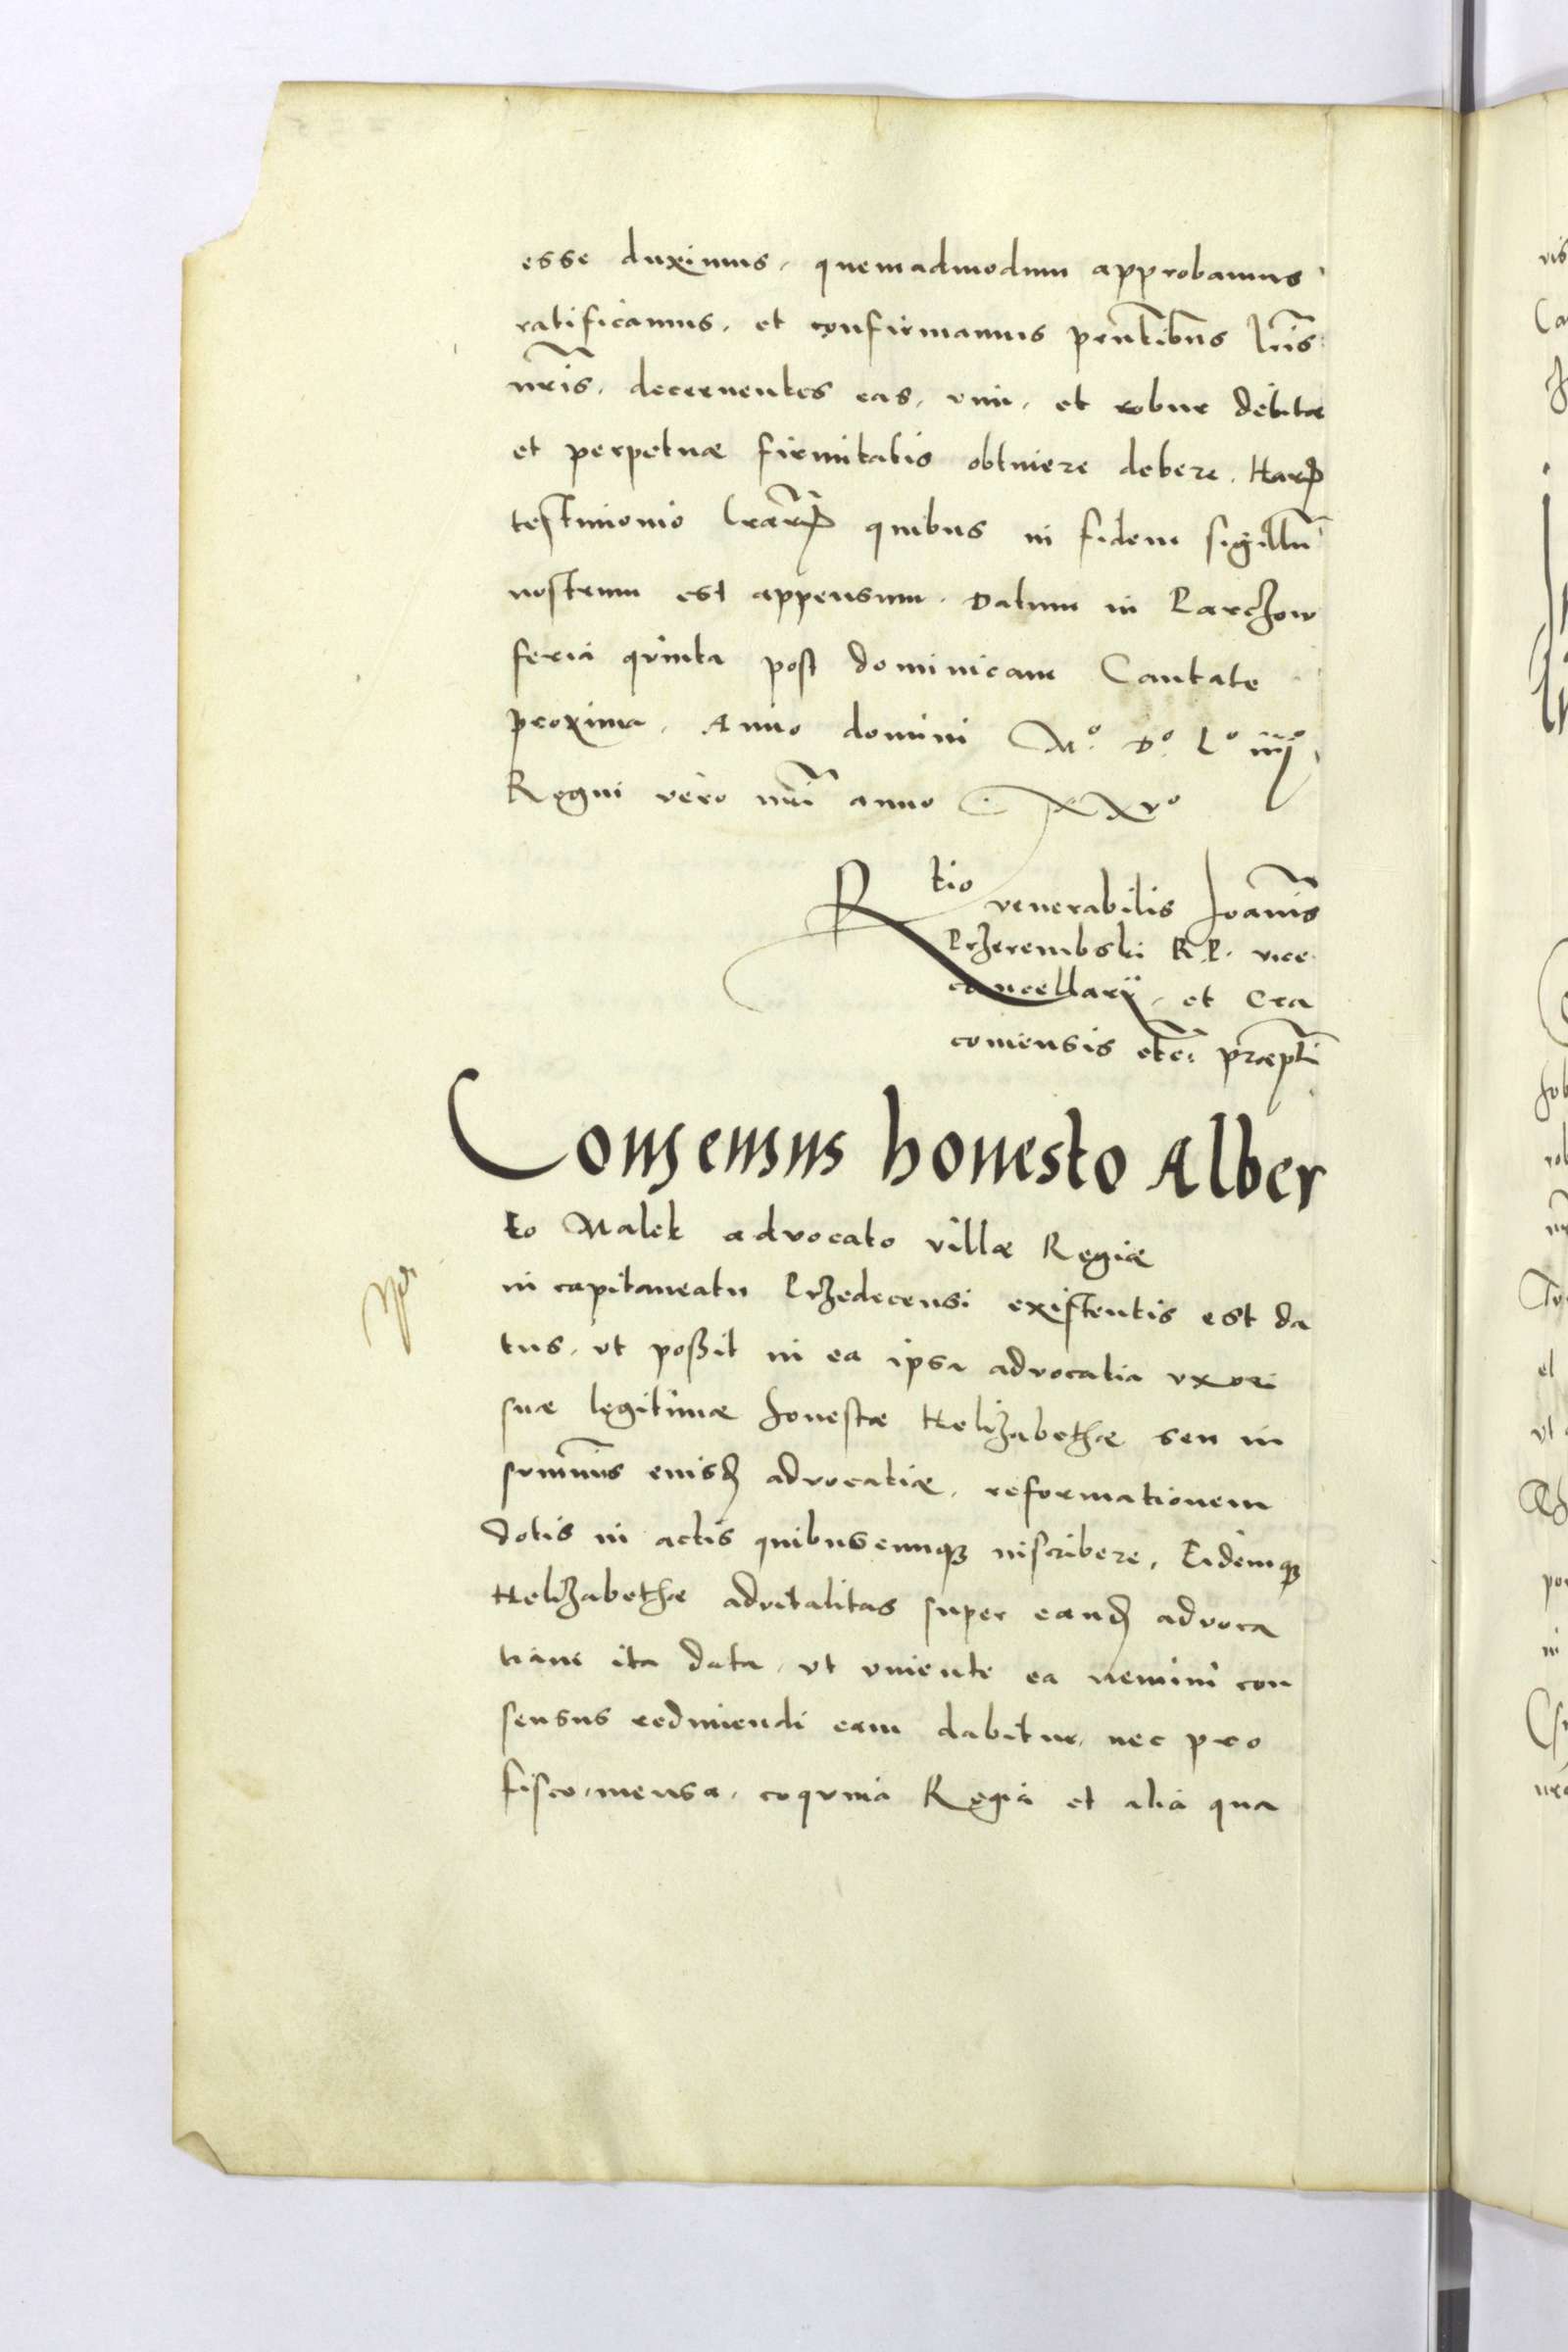 esse duximus, quemadmodum approbamus
ratificamus, et confirmamus pñtibus lr̃is
nr̃is, decernentes eas, vim, et robur debitæ
et perpetuæ firmitatis obtinere debere. Harꝝ
testimonio lr̃arꝝ quibus in fidem sigillũ
nostrum est appensum. Datum in Parczow
feria quinta post dominicam Cantate
proxima. Anno domini Mº. Dº. Lº iiijº,
Regni vero nr̃i anno XXvº
Rtio venerabilis Joannis
Przerembski R. P. vice
cancellarij, et Cra
coviensis etc: præpti
Consensus honesto Alber
to Malek advocato villæ Regiæ
in capitaneatu Przedecensi existentis est da
tus, vt possit in ea ipsa advocatia vxori
suæ legitimæ honestæ Helizabethæ seu in
summis eiusd advocatiæ, reformationem
dotis in actis quibuscunqꝫ inscribere, Eidemqꝫ
Helizabethæ advitalitas super eand advoca
tiam ita data, vt viuente ea nemini con
sensus redimendi eam dabitur, nec pro
fisco, mensa, coquina Regia et alia qua